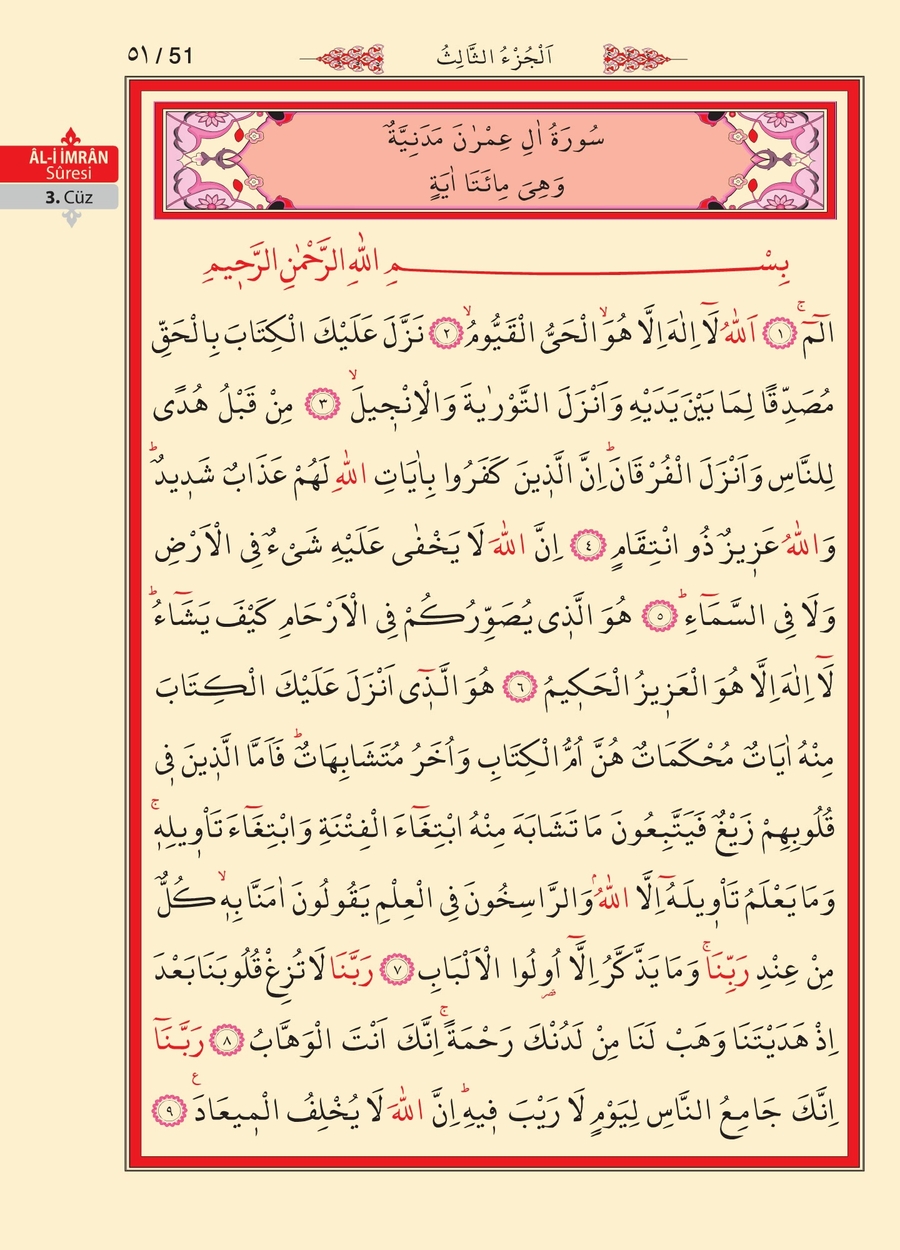 ٥١ / 51
اَلْجُزْءُ الثَّالِثُ
ÂL-İ İMRÂN
Sûresi
3. Cüz
سُورَةُ اٰلِ عِمْرٰنَ مَدَنِيَّةٌ
وَهِىَ مِائَتَا اٰيَةٍ
بِسْــــــــــــــــــــمِ اللّٰهِ الرَّحْمٰنِ الرَّح۪يمِ
الٓمٓۚ ﴿١﴾ اَللّٰهُ لَٓا اِلٰهَ اِلَّا هُوَۙ الْحَىُّ الْقَيُّومُۙ ﴿٢﴾ نَزَّلَ عَلَيْكَ الْكِتَابَ بِالْحَقِّ
مُصَدِّقًا لِمَا بَيْنَ يَدَيْهِ وَاَنْزَلَ التَّوْرٰيةَ وَالْاِنْج۪يلَۙ ﴿٣﴾ مِنْ قَبْلُ هُدًى
لِلنَّاسِ وَاَنْزَلَ الْفُرْقَانَۜ اِنَّ الَّذ۪ينَ كَفَرُوا بِاٰيَاتِ اللّٰهِ لَهُمْ عَذَابٌ شَد۪يدٌۜ
وَاللّٰهُ عَز۪يزٌ ذُو انْتِقَامٍ ﴿٤﴾ اِنَّ اللّٰهَ لَا يَخْفٰى عَلَيْهِ شَىْءٌ فِى الْاَرْضِ
وَلَا فِى السَّمَٓاءِۜ ﴿٥﴾ هُوَ الَّذ۪ى يُصَوِّرُكُمْ فِى الْاَرْحَامِ كَيْفَ يَشَٓاءُۜ
لَٓا اِلٰهَ اِلَّا هُوَ الْعَز۪يزُ الْحَك۪يمُ ﴿٦﴾ هُوَ الَّذ۪ٓى اَنْزَلَ عَلَيْكَ الْكِتَابَ
مِنْهُ اٰيَاتٌ مُحْكَمَاتٌ هُنَّ اُمُّ الْكِتَابِ وَاُخَرُ مُتَشَابِهَاتٌۜ فَاَمَّا الَّذ۪ينَ ف۪ى
قُلُوبِهِمْ زَيْغٌ فَيَتَّبِعُونَ مَا تَشَابَهَ مِنْهُ ابْتِغَٓاءَ الْفِتْنَةِ وَابْتِغَٓاءَ تَاْو۪يلِه۪ۚ
وَمَا يَعْلَمُ تَاْو۪يلَهُٓ اِلَّا اللّٰهُۢ وَالرَّاسِخُونَ فِى الْعِلْمِ يَقُولُونَ اٰمَنَّا بِه۪ۙ كُلٌّ
مِنْ عِنْدِ رَبِّنَاۚ وَمَا يَذَّكَّرُ اِلَّٓا اُولُوا الْاَلْبَابِ ﴿٧﴾ رَبَّنَا لَا تُزِغْ قُلُوبَنَا بَعْدَ
اِذْ هَدَيْتَنَا وَهَبْ لَنَا مِنْ لَدُنْكَ رَحْمَةًۚ اِنَّكَ اَنْتَ الْوَهَّابُ ﴿٨﴾ رَبَّنَٓا
اِنَّكَ جَامِعُ النَّاسِ لِيَوْمٍ لَا رَيْبَ ف۪يهِۜ اِنَّ اللّٰهَ لَا يُخْلِفُ الْم۪يعَادَ۟ ﴿٩﴾